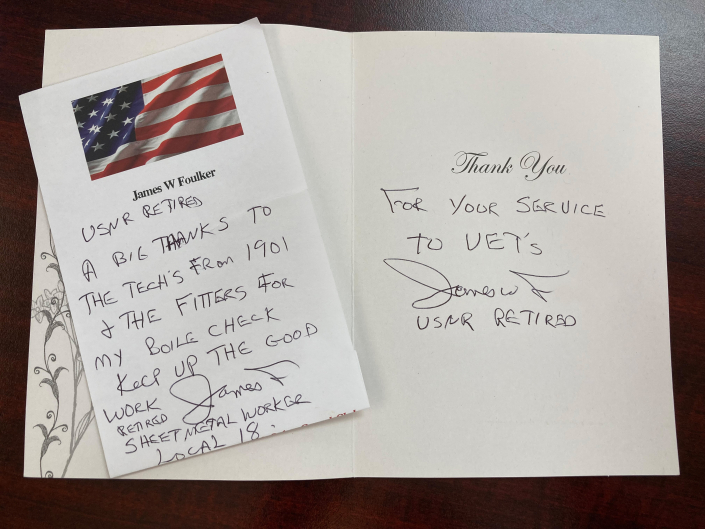 James W Foulker
USNR RETIRED
A BIG THANKS TO
THE TECH'S FROM 1901
& THE FITTERS FOR
MY BOILE CHECK
KEEP UP THE GOOD
WORK James F
RETIRED
SHEETMETAL WORKER
LOCAL 18.
Thank You
FOR YOUR SERVICE
TO VET'S
James W F
USNR RETIRED